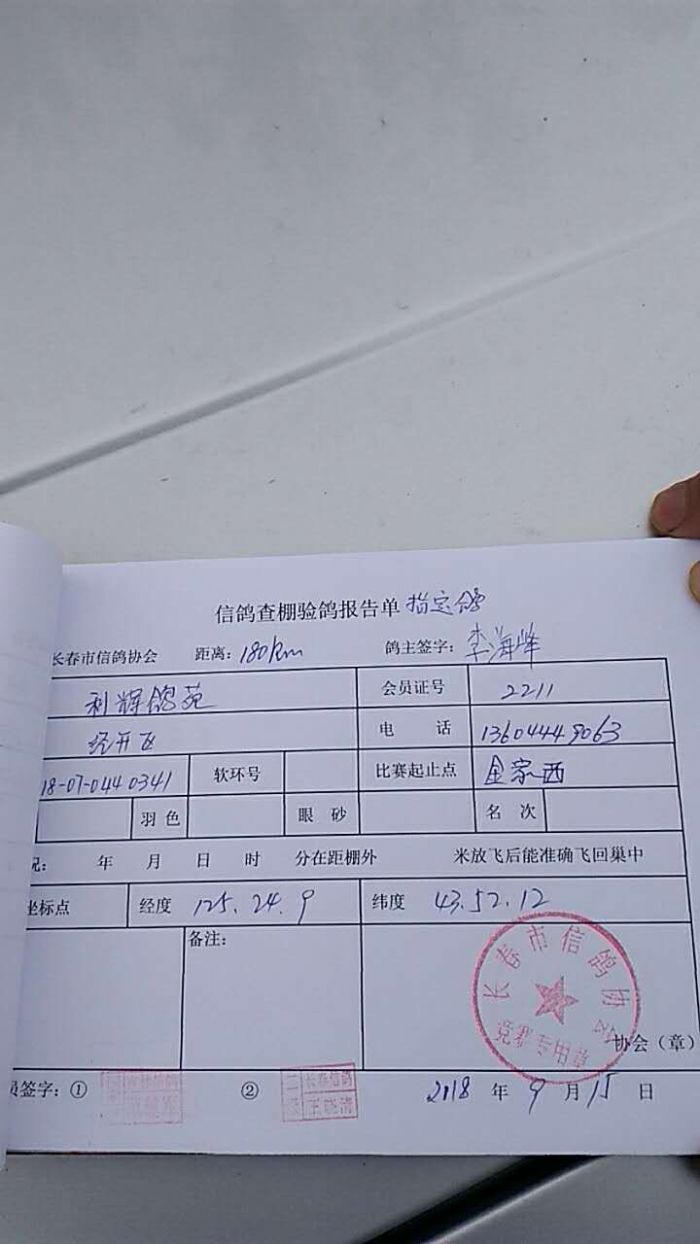 信鸽查棚验鸽报告单 指定鸽
长春市信鸽协会 距离：180km 鸽主签字：李海峰
利辉鸽苑 会员证号 2211
经开区 电 话 13604449063
18-07-0440341 软环号 比赛起止点 金家西
羽色 眼砂 名次
况： 年 月 日 时 分在距棚外 米放飞后能准确飞回巢中
坐标点 经度 125.24.9 纬度 43.52.12
备注：
长春市信鸽协会
竞赛专用章
协会（章）
员签字：① ② 长春信鸽 王晓清 2018 年 9 月 15 日